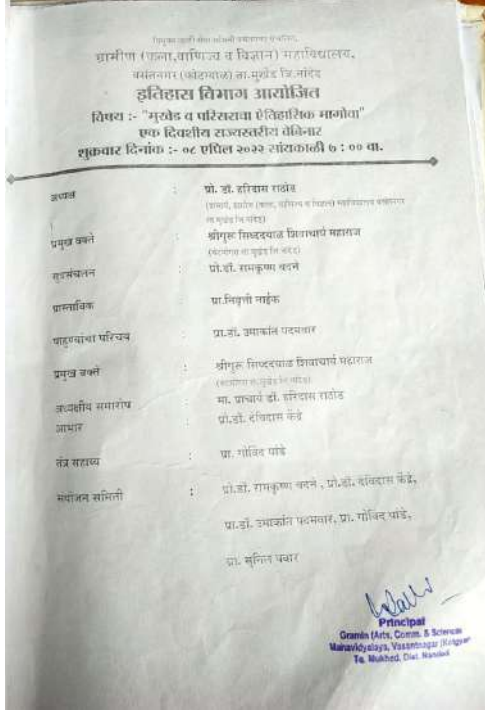 ग्रामीण (कला,वाणिज्य व विज्ञान) महाविद्यालय,
वसंतनगर (कोटग्याळ) ता.मुखेड जि.नांदेड
इतिहास विभाग आयोजित
विषय :- "मुखेड व परिसराचा ऐतिहासिक मागोवा"
एक दिवशीय राज्यस्तरीय वेबिनार
शुक्रवार दिनांक :- ०८ एप्रिल २०२२ सांयकाळी ७ : ०० वा.
अध्यक्ष : प्रो. डॉ. हरिदास राठोड
ता मुखेड जि नांदेड)
प्रमुख वक्ते : श्रीगुरू सिध्ददयाळ शिवाचार्य महाराज
ता मुखेड जि नांदेड)
सुत्रसंचलन : प्रो.डॉ. रामकृष्ण बदने
प्रास्ताविक : प्रा.निवृत्ती नाईक
पाहुण्यांचा परिचय : प्रा.डॉ. उमाकांत पदमवार
प्रमुख वक्ते : श्रीगुरू सिध्ददयाळ शिवाचार्य महाराज
ता.मुखेड जि नांदेड)
अध्यक्षीय समारोप : मा. प्राचार्य डॉ. हरिदास राठोड
आभार : प्रो.डॉ. देविदास केंद्रे
तंत्र सहाय्य : प्रा. गोविंद पांडे
संयोजन समिती : प्रो.डॉ. रामकृष्ण बदने , प्रो.डॉ. देविदास केंद्रे,
प्रा.डॉ. उमाकांत पदमवार, प्रा. गोविंद पांडे,
प्रा. सुनिल पवार
Principal
Gramin (Arts, Comm. & Science)
Mahavidyalaya, Vasantnagar
Tq. Mukhed, Dist. Nanded